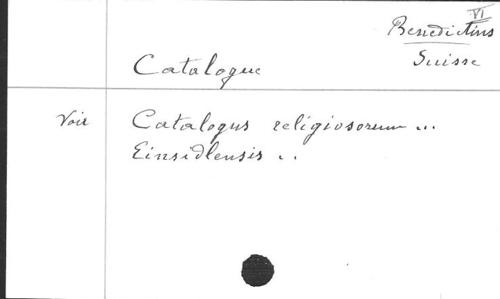 VI
Benedictins
Suisse
Catalogue
Voir Catalogus religiosorum ...
Einsidlensis ..